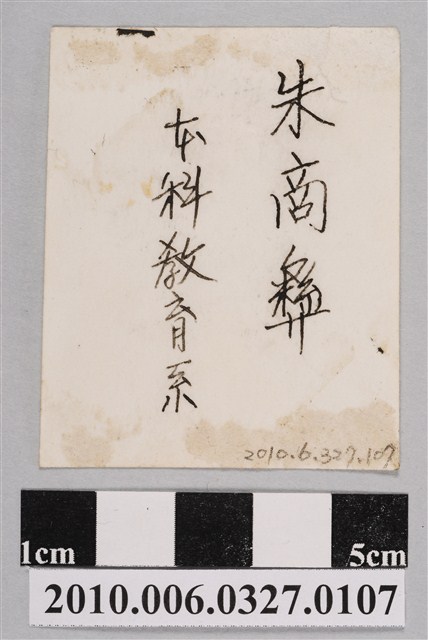 朱商彝
本科教育系
2010.6.327.107
1cm 5cm
2010.006.0327.0107